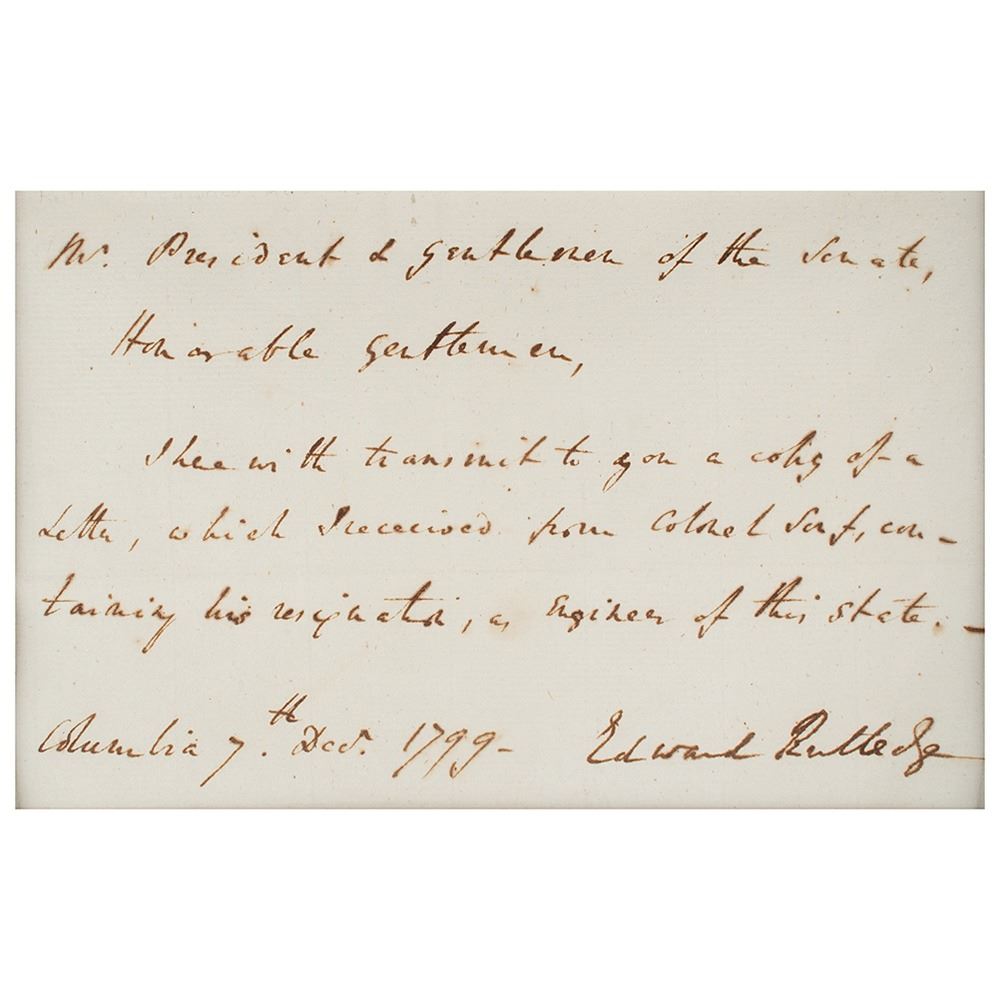 Mr. President & Gentlemen of the Senate,
Honorable Gentlemen,
I herewith transmit to you a copy of a
Letter, which I received from Colonel Senf, con-
taining his resignation, as Engineer of this State. -
Columbia 7.th Decr. 1799 -
Edward Rutledge